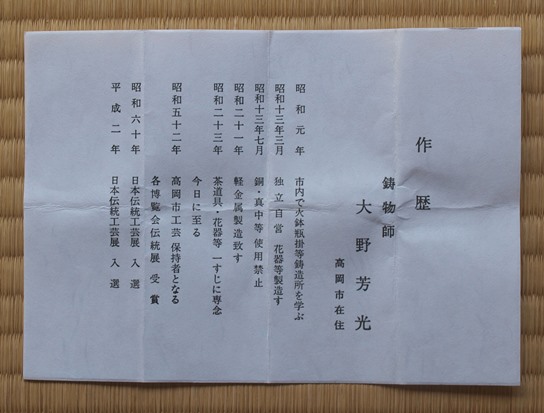 作歴
鋳物師
大野芳光
高岡市在住
昭和元年 市内で火鉢瓶掛等鋳造所を学ぶ
昭和十三年三月 独立自営 花器等製造す
昭和十三年七月 銅・真中等使用禁止
昭和二十一年 軽金属製造致す
昭和二十三年 茶道具・花器等一すじに専念
今日に至る
昭和五十二年 高岡市工芸保持者となる
各博覧会伝統展 受賞
昭和六十年 日本伝統工芸展 入選
平成二年 日本伝統工芸展 入選